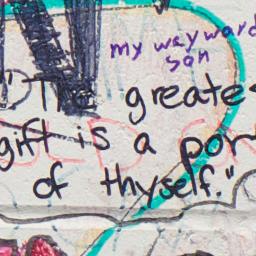 my wayward
son
"The greates
gift is a por
of thyself."